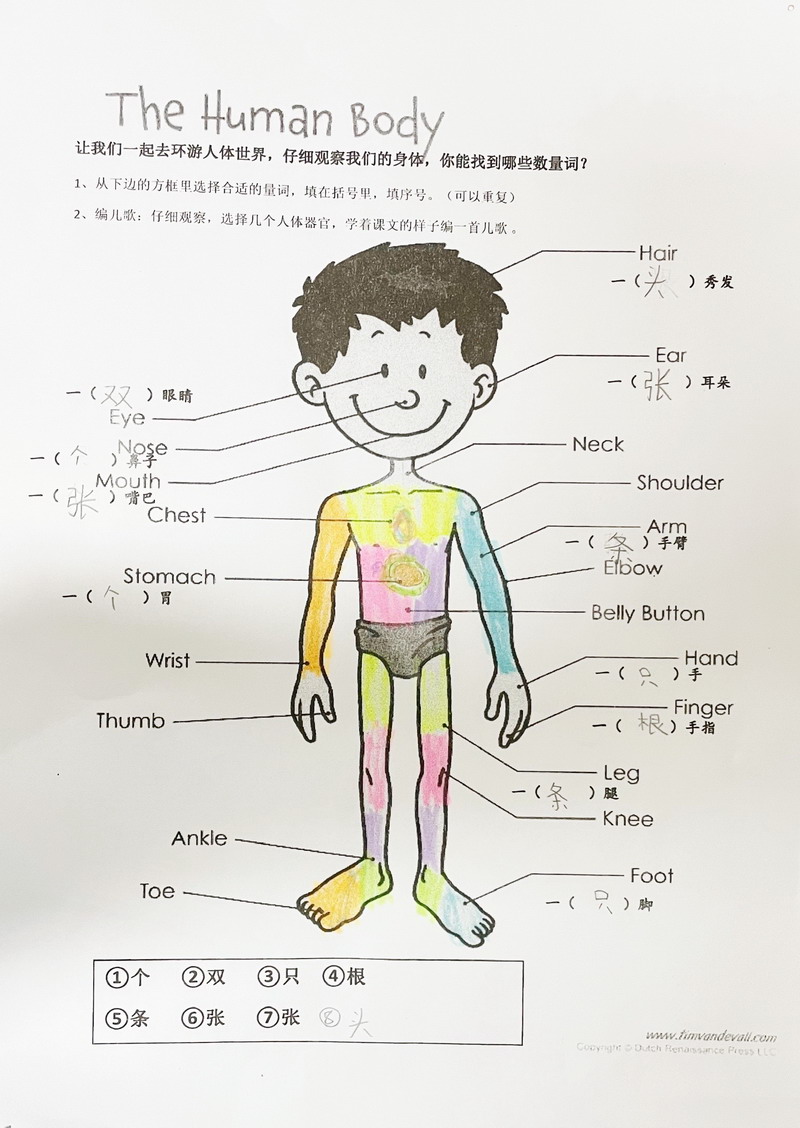 The Human Body
让我们一起去环游人体世界，仔细观察我们的身体，你能找到哪些数量词？
1、从下边的方框里选择合适的量词，填在括号里，填序号。（可以重复）
2、编儿歌：仔细观察，选择几个人体器官，学着课文的样子编一首儿歌。
Hair
一（头）秀发
Ear
一（张）耳朵
一（双）眼睛
Eye
Neck
Nose
一（个）鼻子
Mouth
一（张）嘴巴
Shoulder
Chest
Arm
一（条）手臂
Elbow
Stomach
一（个）胃
Belly Button
Wrist
Hand
一（只）手
Thumb
Finger
一（根）手指
Leg
一（条）腿
Knee
Ankle
Foot
Toe
一（只）脚
①个 ②双 ③只 ④根
⑤条 ⑥张 ⑦张 ⑧头
www.timvandevall.com
Copyright © Dutch Renaissance Press LLC